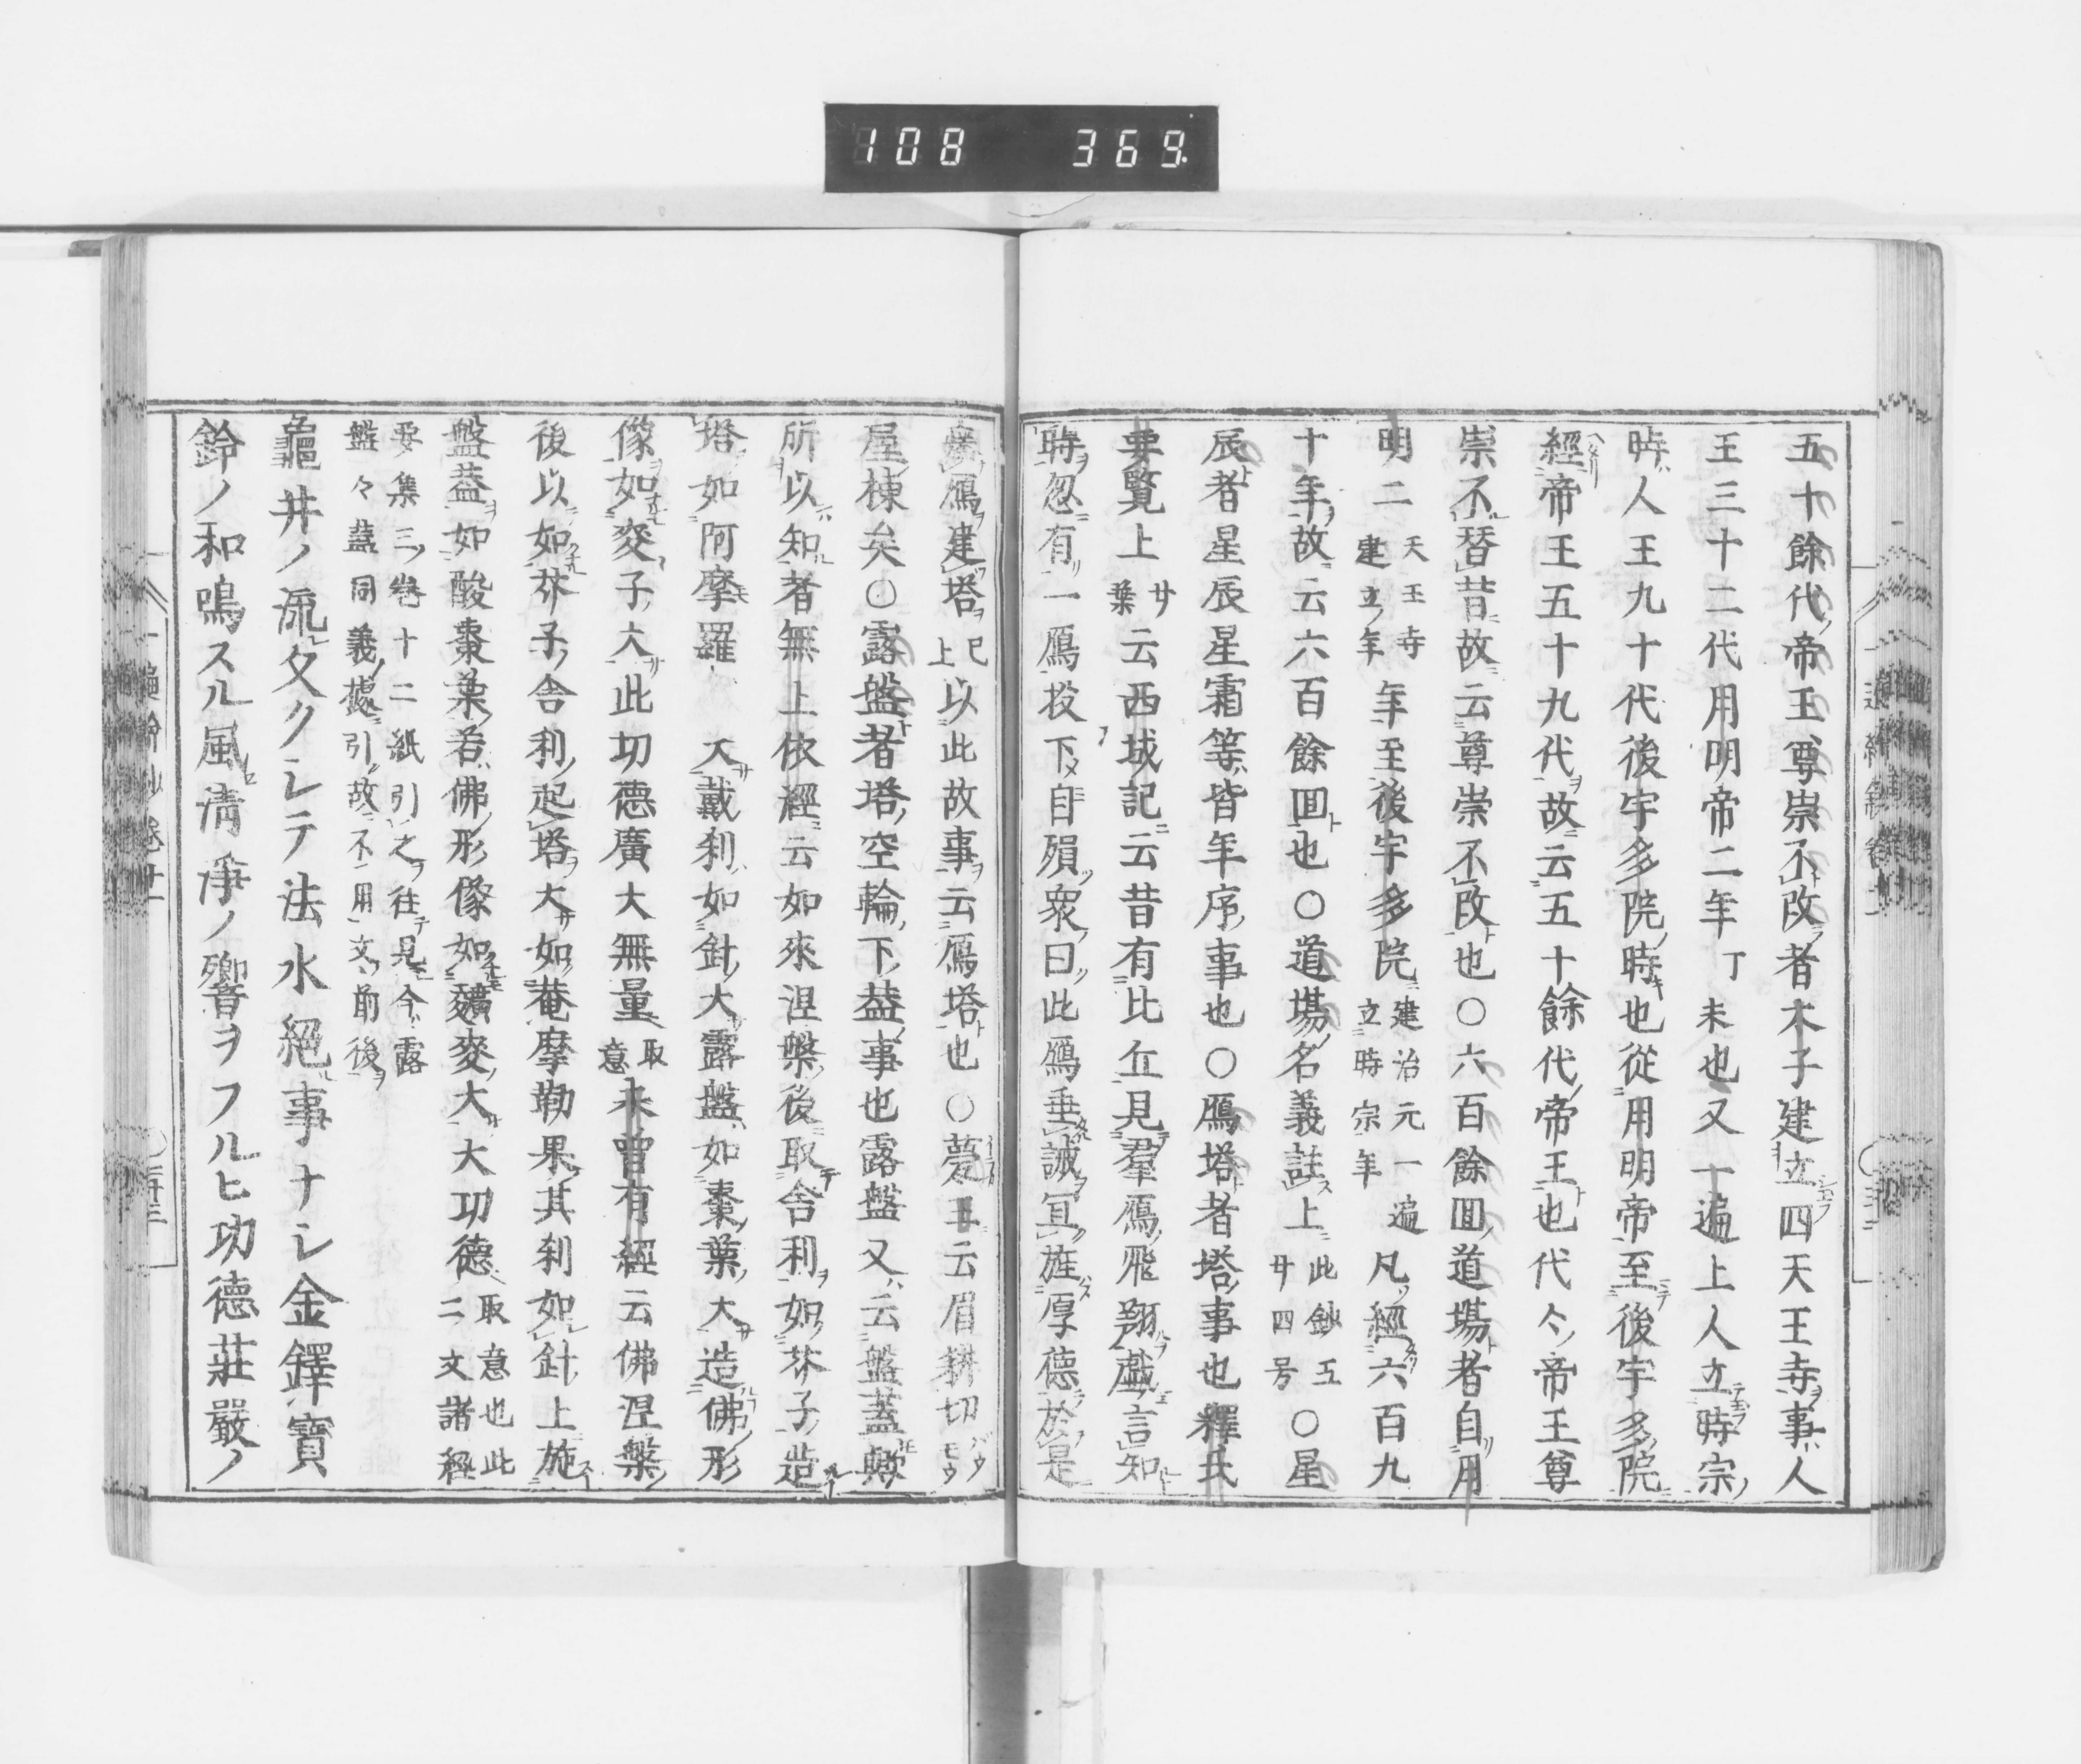 108 369
五十餘代帝王尊崇不改者太子建立四天王寺事人
王三十二代用明帝二年丁未也又一遍上人立時宗
時人王九十代後宇多院時也從用明帝至後宇多院
經帝王五十九代故云五十餘代帝王也代々帝王尊
崇不替昔故云尊崇不改也〇六百餘回道場者自用
明二天王寺建立年年至後宇多院建治元一遍立時宗年凡經六百九
十年故云六百餘回也〇道場名義註上此鈔五廿四号〇星
辰者星辰星霜等皆年序事也〇鴈塔者塔事也釋氏
要覽上廿葉云西域記云昔有比丘見羣鴈飛翔戲言知
時忽有一鴈投下自殞衆曰此鴈垂誡冥旌厚德於是
瘞鴈建塔已上以此故事云鴈塔也〇甍玉云眉耕切バウモウ
屋棟矣〇露盤者塔空輪下葢事也露盤又云盤蓋歟
所以知者無上依經云如來涅槃後取舍利如芥子造
塔如阿摩羅大戴刹如針大露盤如棗葉大造佛形
像如麥子大此功德廣大無量取意未曾有經云佛涅槃
後以如芥子舍利起塔大如菴摩勒果其刹如針上施
盤葢如酸棗葉若佛形像如穬麥大大功德取意也此二文諸經
要集三卷十二紙引之往見今露
盤々蓋同義據引故不用文前後
龜井ノ流久クレテ法水絕事ナシ金鐸寶
鈴ノ和鳴スル風淸淨ノ響ヲフルヒ功德莊嚴ノ